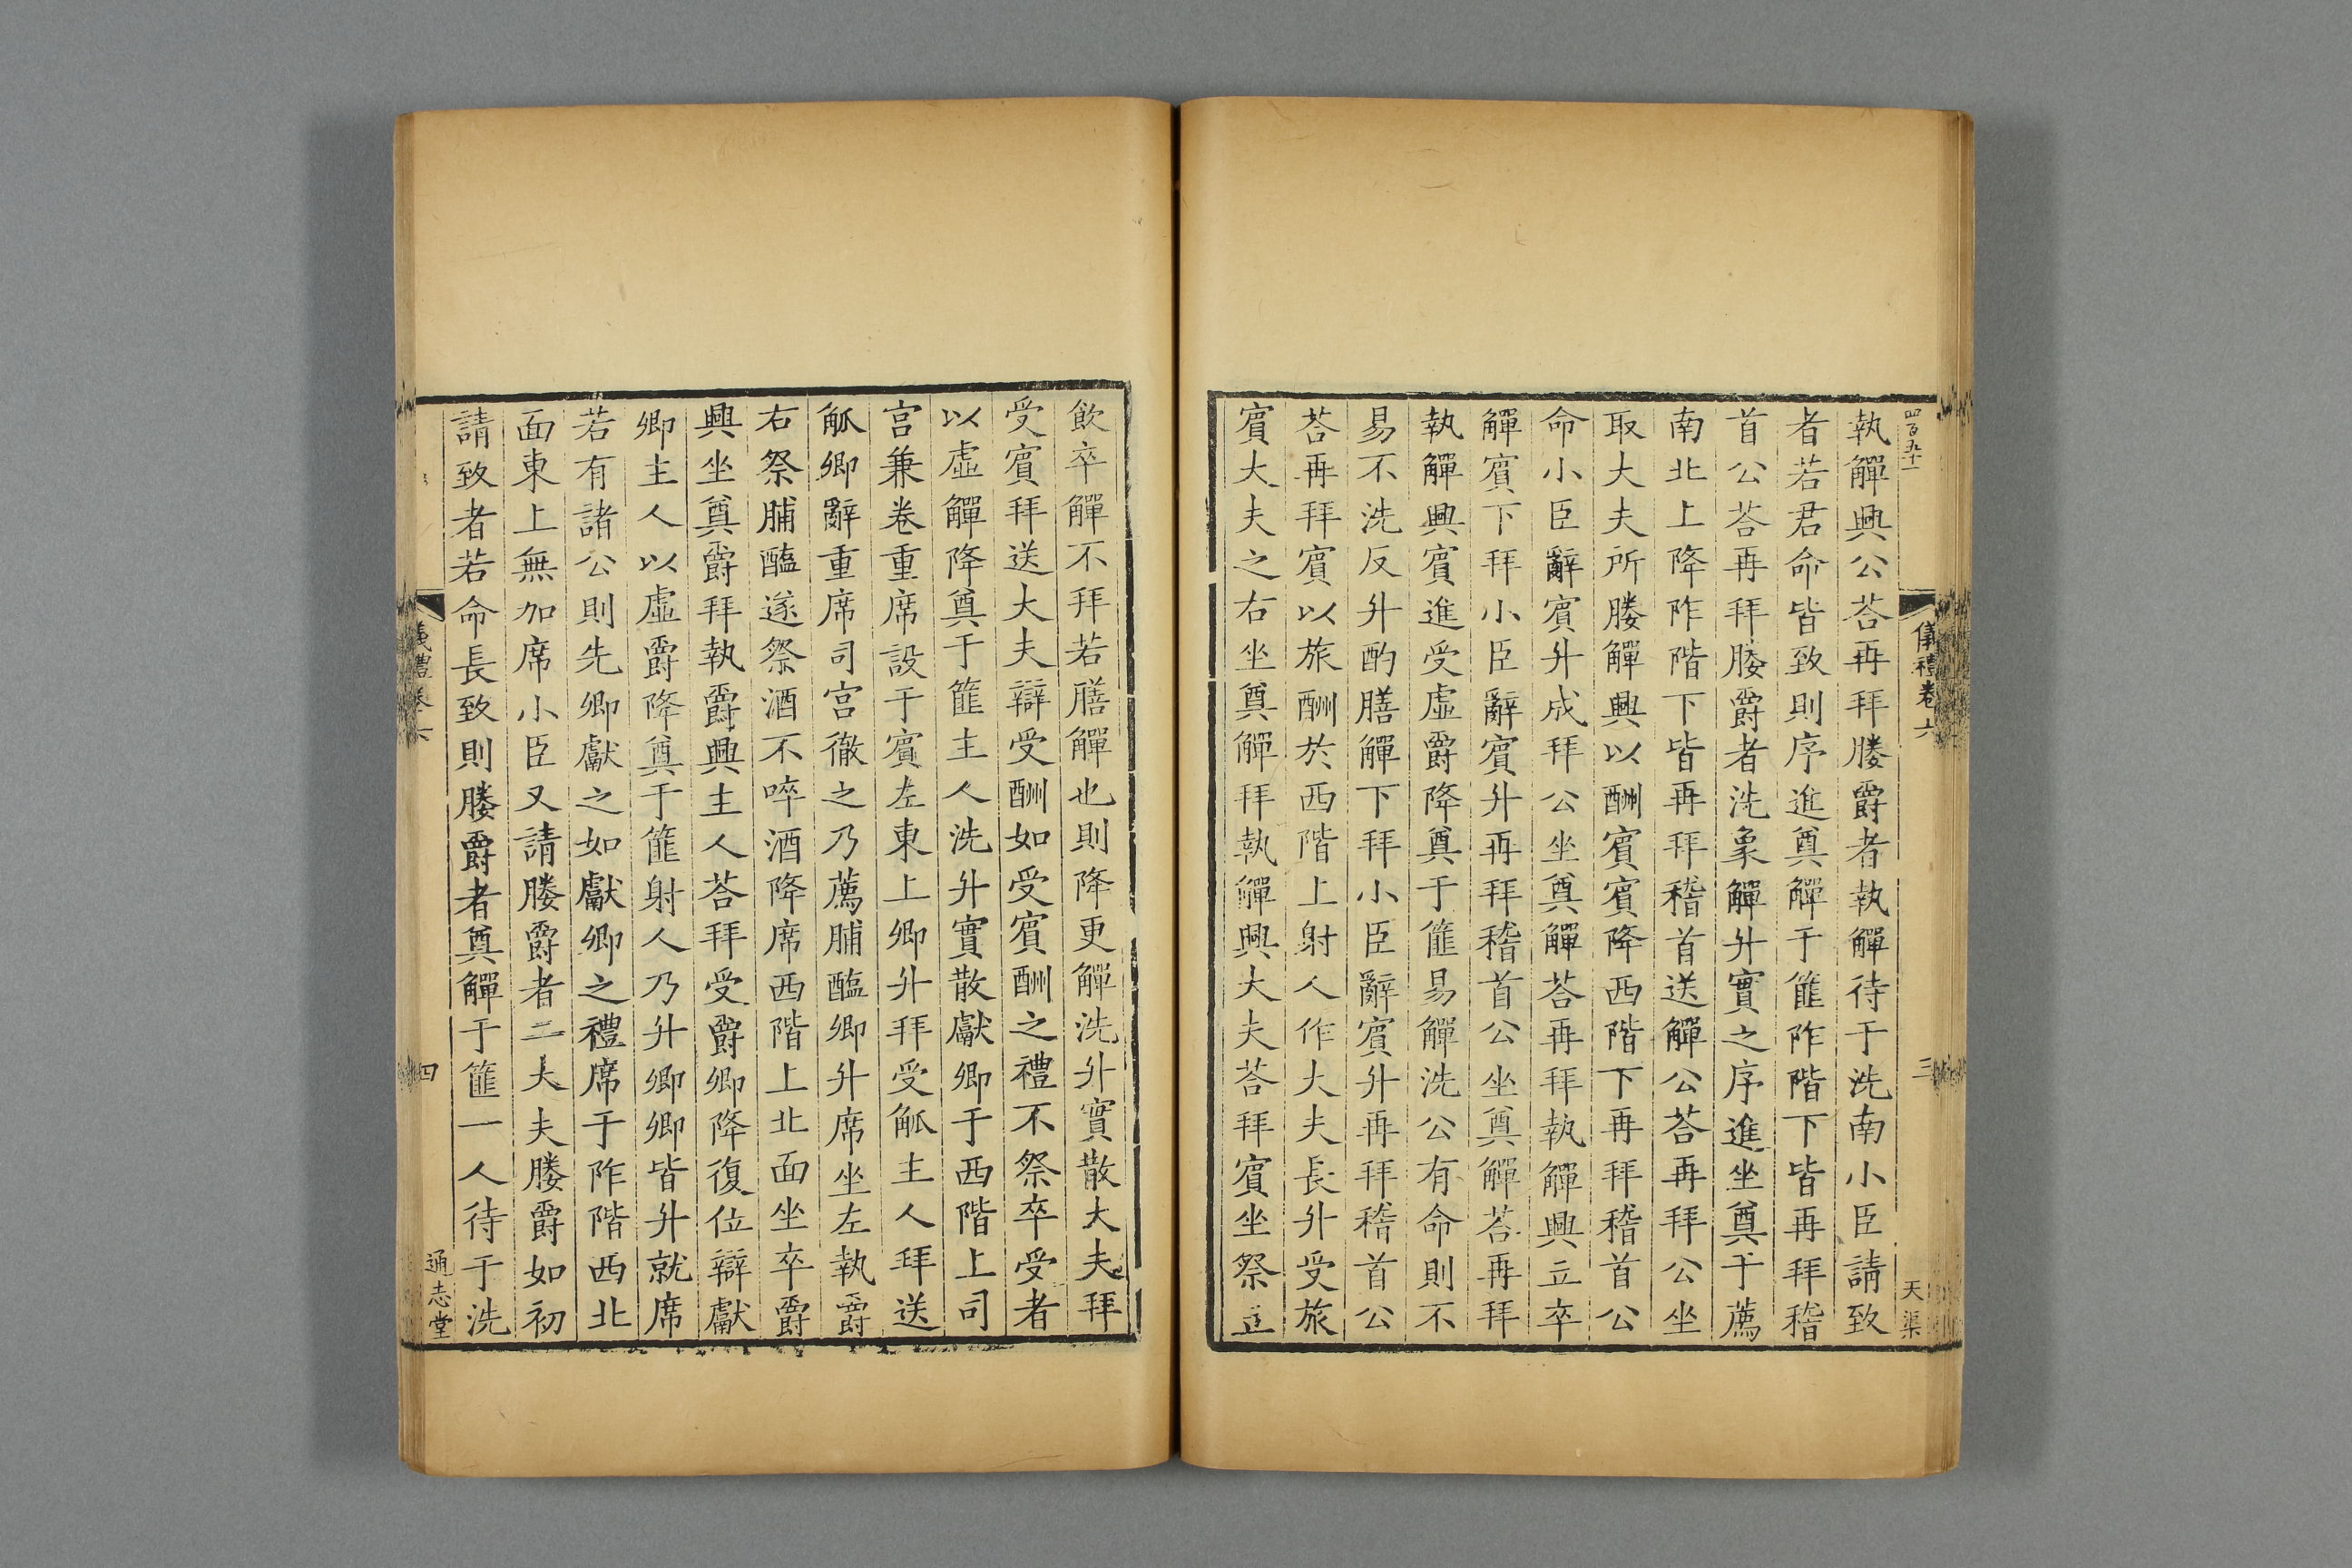 四百九十一
儀禮卷六
三
天渠
執觶興公荅再拜媵爵者執觶待于洗南小臣請致
者若君命皆致則序進奠觶于篚阼階下皆再拜稽
首公荅再拜媵爵者洗象觶升實之序進坐奠于薦
南北上降阼階下皆再拜稽首送觶公荅再拜公坐
取大夫所媵觶興以酬賓賓降西階下再拜稽首公
命小臣辭賓升成拜公坐奠觶荅再拜執觶興立卒
觶賓下拜小臣辭賓升再拜稽首公坐奠觶荅再拜
執觶興賓進受虛爵降奠于篚易觶洗公有命則不
易不洗反升酌膳觶下拜小臣辭賓升再拜稽首公
荅再拜賓以旅酬於西階上射人作大夫長升受旅
賓大夫之右坐奠觶拜執觶興大夫荅拜賓坐祭立
飲卒觶不拜若膳觶也則降更觶洗升實散大夫拜
受賓拜送大夫辯受酬如受賓酬之禮不祭卒受者
以虛觶降奠于篚主人洗升實散獻卿于西階上司
宮兼卷重席設于賓左東上卿升拜受觚主人拜送
觚卿辭重席司宮徹之乃薦脯醢卿升席坐左執爵
右祭脯醢遂祭酒不啐酒降席西階上北面坐卒爵
興坐奠爵拜執爵興主人荅拜受爵卿降復位辯獻
卿主人以虛爵降奠于篚射人乃升卿卿皆升就席
若有諸公則先卿獻之如獻卿之禮席于阼階西北
面東上無加席小臣又請媵爵者二大夫媵爵如初
請致者若命長致則媵爵者奠觶于篚一人待于洗
儀禮卷六
四
通志堂